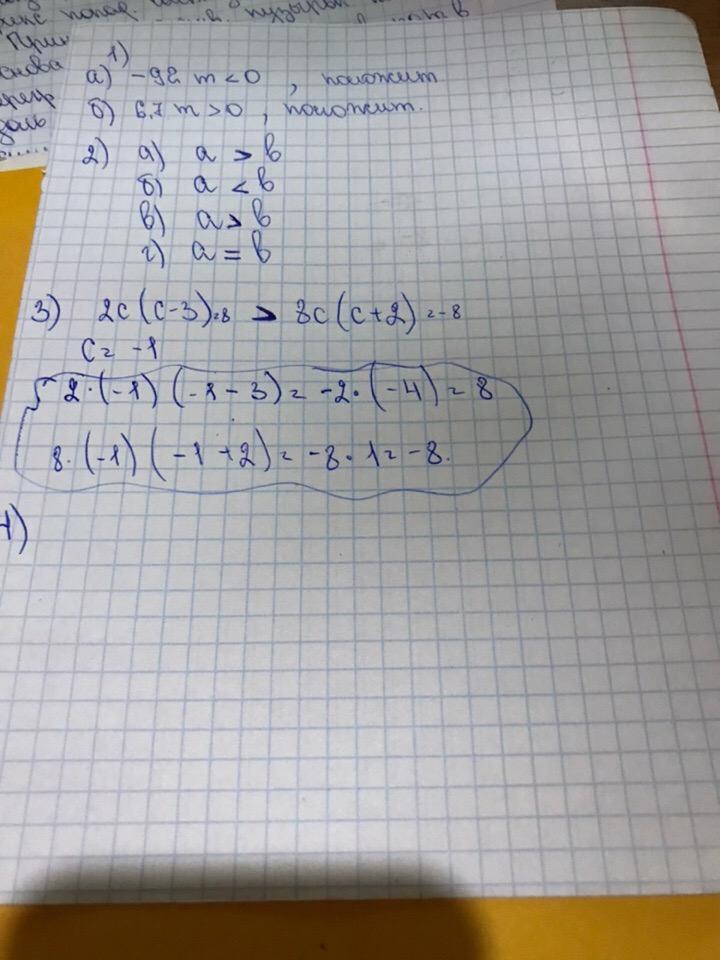 Прин
снова
1)
а) -92 m < 0 , положит
б) 6,7 m > 0 , положит.
2) а) a > b
б) a < b
в) a > b
г) a = b
3) 2c (c-3)=8 > 8c (c+2) =-8
c = -1
2·(-1) (-1-3) = -2·(-4) = 8
8·(-1) (-1+2) = -8·1 = -8.
4)